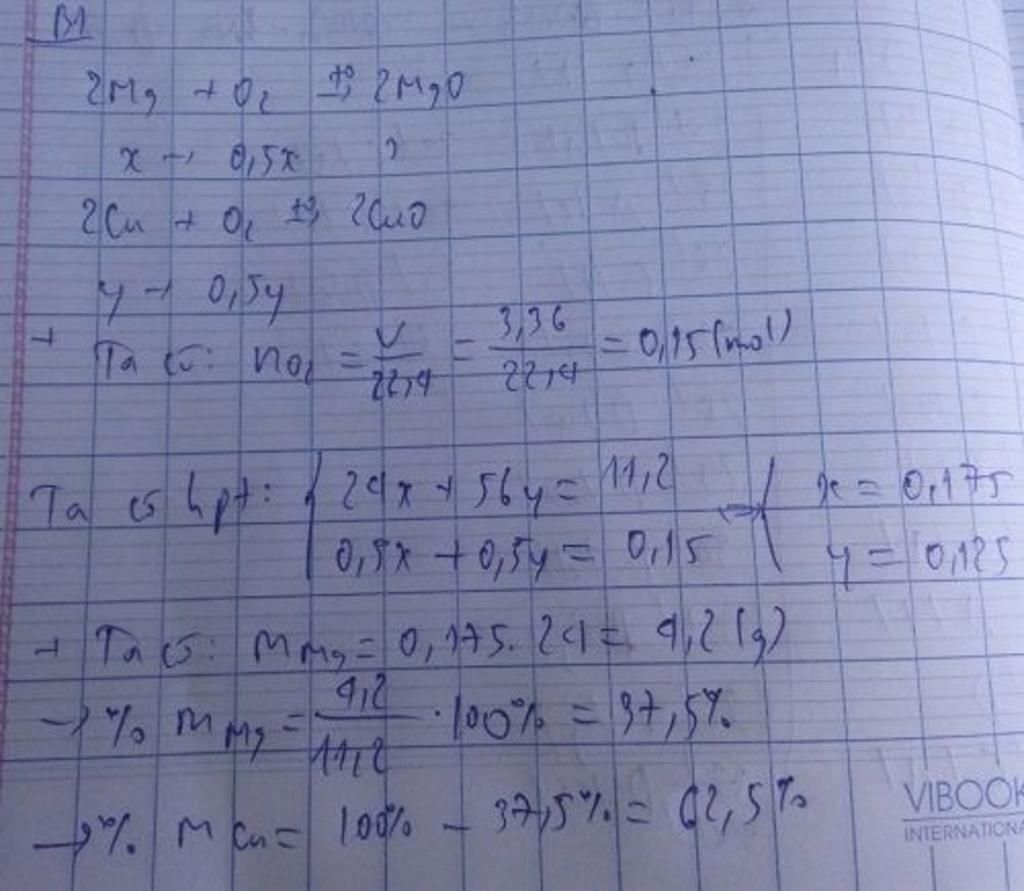 B1
2Mg + O₂ t°→ 2MgO
x → 0,5x
2Cu + O₂ t°→ 2CuO
y → 0,5y
+ Ta có: nO₂ = V/22,4 = 3,36/22,4 = 0,15 (mol)
Ta có hpt: { 24x + 56y = 11,2 ⇔ { x = 0,175
0,5x + 0,5y = 0,15 y = 0,125
+ Ta có: mMg = 0,175. 24 = 4,2 (g)
→ % mMg = 4,2/11,2 . 100% = 37,5%
→ % mCu = 100% - 37,5% = 62,5%
VIBOOK
INTERNATIONA